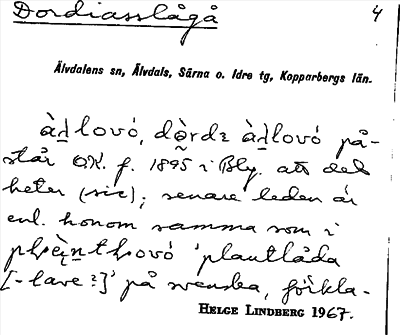 Dordiasslågå 4
Älvdalens sn, Älvdals, Särna o. Idre tg, Kopparbergs län.
àḏlovó, dòrdɛ àḏlovó på-
står O.K. f. 1895 i Bly. att det
heter (sic); senare leden är
enl. honom samma som i
'plautlåda
[-lave?]' på svenska, förkla-
HELGE LINDBERG 1967.